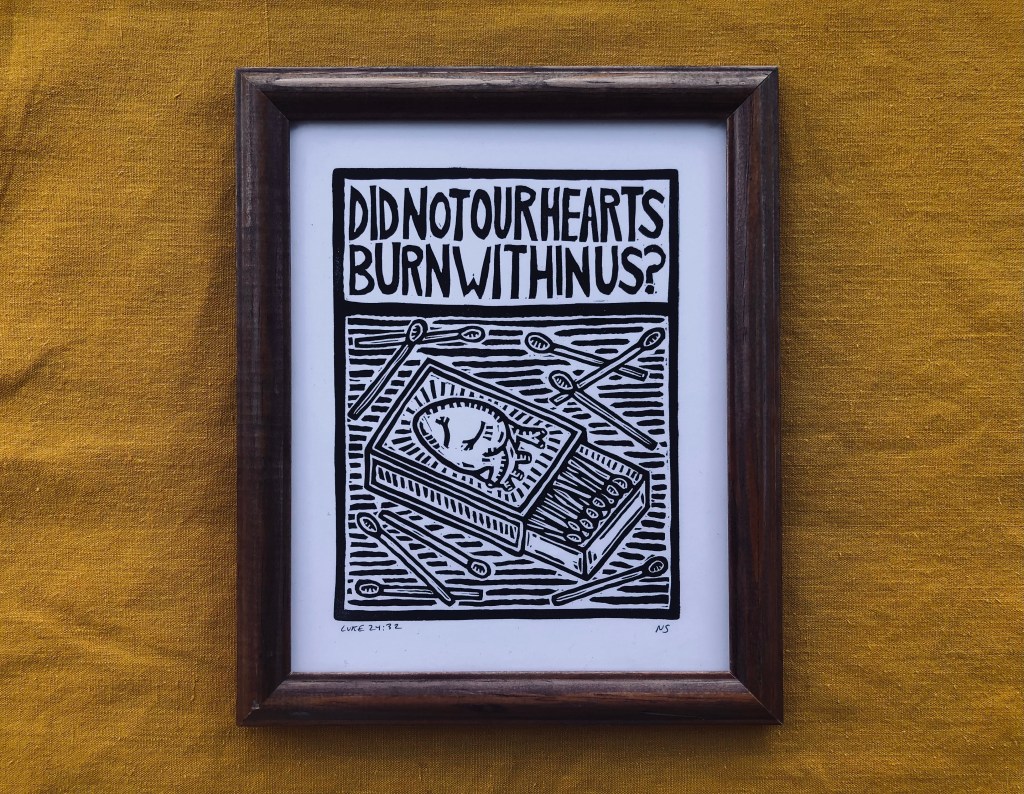 DID NOT OUR HEARTS
BURN WITHIN US?
LUKE 24:32
NS